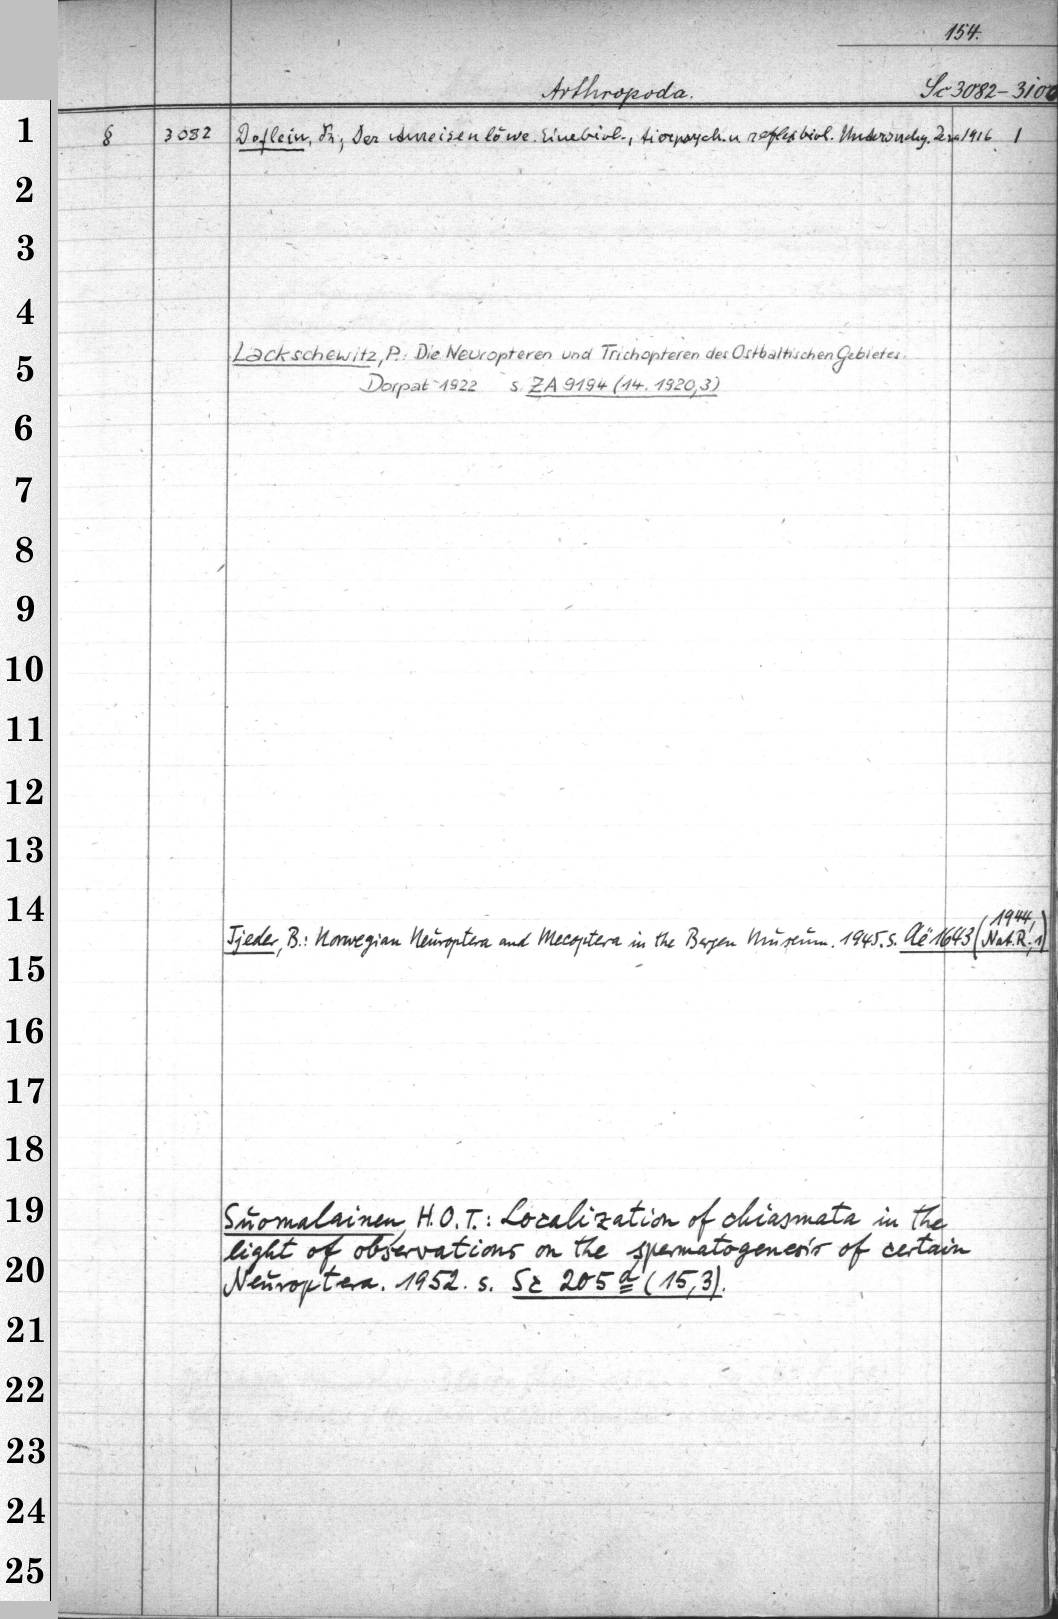 154.
Arthropoda. Sc 3082–3100
1 8 3082 Doflein, Fr., Der Ameisenlöwe. Eine biol., tierpsych. u. reflexbiol. Untersuchg. Jena 1916. 1
2
3
4
5 Lackschewitz, P.: Die Neuropteren und Trichopteren des Ostbaltischen Gebietes.
Dorpat 1922 s. ZA 9194 (14. 1920,3)
6
7
8
9
10
11
12
13
14
Tjeder, B.: Norwegian Neuroptera and Mecoptera in the Bergen Museum. 1945. s. Aë 1643 (1944, Nat.R., 1)
15
16
17
18
19 Suomalainen, H.O.T.: Localization of chiasmata in the
light of observations on the spermatogenesis of certain
20 Neuroptera. 1952. s. Sz 205 a (15,3).
21
22
23
24
25